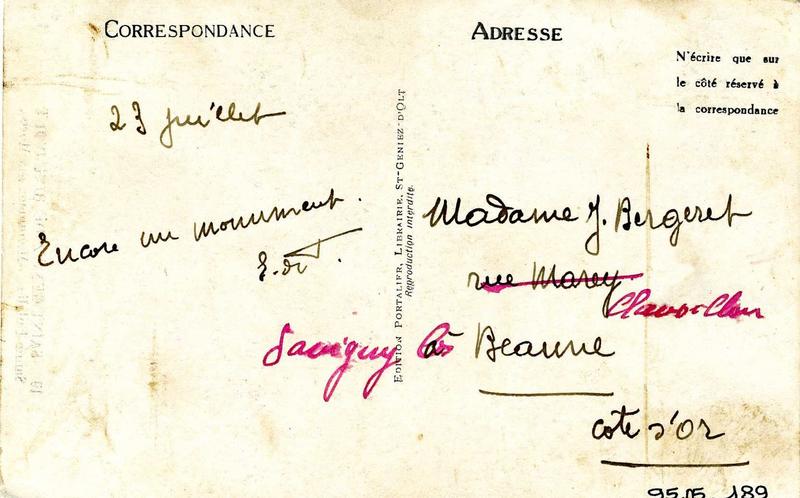 CORRESPONDANCE
23 juillet
Encore un monument.
E. de T.
EDITION PORTALIER, LIBRAIRIE, ST-GENIEZ-D'OLT
Reproduction interdite.
ADRESSE
N'écrire que sur
le côté réservé à
la correspondance
Madame J. Bergeret
rue Marey
Clavoillon
Savigny lès à Beaune
Cote d'Or
95.15.189